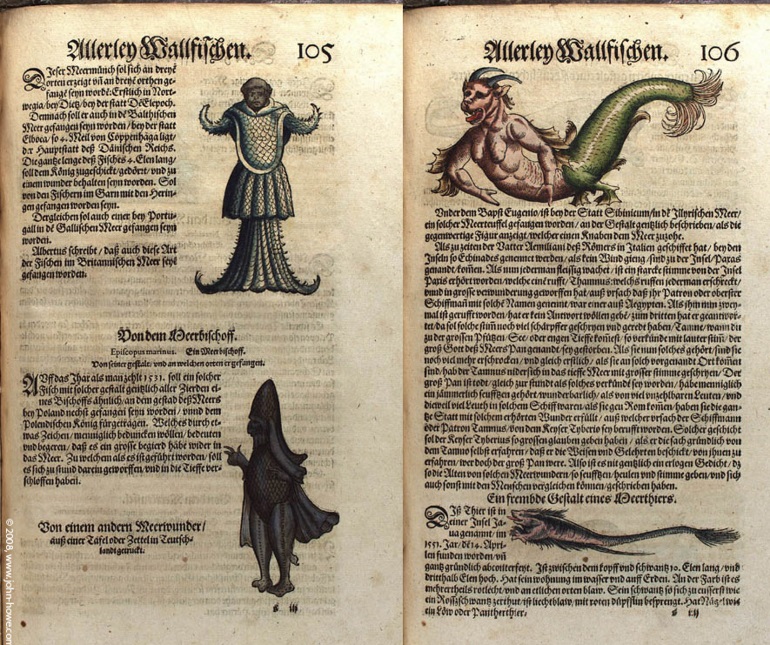 Allerley Wallfischen. 105
Dieser Meermünch sol sich an dreyẽ
orten erzeigt vñ an dreyẽ orthen ge-
fangẽ seyn wordẽ: Erstlich in Nort-
wegia/bey Dietz/bey der statt Dẽ Elepoch.
Demnach soll er auch in dẽ Balthischen
Meer gefangen seyn worden/bey der statt
Elboca/so 4. Meil von Coppenhaga ligt/
der Hauptstatt deß Dänischen Reichs.
Die gantze lenge deß Fisches 4. Elen lang/
soll dem König zugeschickt/gedörrt/vnd zu
einem wunder behalten seyn worden. Sol
von den Fischern im Garn mit den Herin-
gen gefangen worden seyn.
Dergleichen sol auch einer bey Portu-
gall in dẽ Gallischen Meer gefangen seyn
worden.
Albertus schreibt/daß auch diese Art
der Fischen im Britannischen Meer seyẽ
gefangen worden.
Von dem Meerbischoff.
Episcopus marinus. Ein Meerbischoff.
Von seiner gestalt: vnd an welchen orten er gefangen.
Auff das Jhar als man zehlt 1531. soll ein solcher
Fisch mit solcher gestalt gentzlich aller Zierden ei-
nes Bischoffs ähnlich/an dem gestad deß Meers
bey Poland nechst gefangen seyn worden/vnnd dem
Polendischen König fürgetragen. Welches durch et-
was Zeichen/menniglich beduncken wöllen/bedeuten
vnd begeren/daß es ein grosse begierd habe wider in
das Meer. Zu welchem als es ist geführt worden/soll
es sich zu stund darein geworffen/vnd in die Tieffe ver-
schloffen haben.
Von einem andern Meerwunder/
auß einer Tafel oder Zettel in Teutsch-
landt getruckt.
s iij
Allerley Wallfischen. 106
Vnder dem Bapst Eugenio/ist bey der Statt Sibinicum/in dẽ Illyrischen Meer/
ein solcher Meerteuffel gefangen worden/an der Gestalt gentzlich beschrieben/als die
gegenwertige Figur anzeigt/welcher einen Knaben dem Meer zuzohe.
Als zu zeiten der Vatter Aemiliani deß Römers in Italien geschiffet hat/bey den
Inseln so Echinades genennet werden/als kein Wind gieng/sind zu der Insel/Paxas
genand/kom̃en. Als nun jederman fleissig wachet/ist ein starcke stimme von der Insel
Paxis erhört worden/welche einẽ rufft/Thamnus: welchs ruffen jederman erschreckt/
vnnd in grosse verwunderung geworffen hat/auß vrsach daß jhr Patron oder oberster
Schiffman mit solchẽ Namen genant/war einer auß Aegypten. Als jhm nun zwey-
mal ist gerufft worden/hat er kein Antwort wöllen gebẽ/zum dritten hat er geantwor-
tet/da sol solche stim̃ noch viel schärpffer geschryen vnd geredt haben/Tamne/wann du
zu der grossen Pfützen See/oder engen Tieffe kom̃est/so verkünde mit lauter stim̃/der
groß Got des Meers Pan genand/sey gestorben. Als sie nun solches gehört/sind sie
noch viel mehr erschrocken/vnd gleich erstlich/als sie an solch vorgenandt Ort kom̃en
sind/hab der Tamnus nidersich in das tieffe Meer mit grosser stimme geschryen/Der
groß Pan ist todt/gleich zur stund als solches verkündt sey worden/habe menniglich
ein jämmerlich seufftzen gehört/wunderbarlich/als von viel vnzehlbaren Leuten/vnd
dieweil viel Leuth in solchem Schiff waren/als sie gen Rom kom̃en/haben sie die gan-
tze Statt mit solchem erhörten Wunder erfüllt/auß welcher vrsach der Schiffmann
oder Patron Tamnus/von dem Keyser Tyberio sey beruffen worden. Solcher geschicht
sol der Keyser Tyberius so grossen glauben geben haben/als er die sach gründlich von
dem Tamno selbst erfahren/daß er die Weisen vnd Gelehrten beschickt/von jhnen zu
erfahren/wer doch der groß Pan were. Also ist es nit gentzlich ein erlogen Gedicht/dz
so die Alten von solchen Meerwundern/so seufftzen/heulen vnd stimme geben/vnd sich
auch sonst mit den Menschen vergleichen können/geschrieben haben.
Ein frembde Gestalt eines Meerthiers.
Diß Thier ist in
einer Insel Ja-
ua genannt/im
1551. Jar/dẽ 14. Apri-
len funden worden/vñ
gantz gründlich abconterfeyt. Ist zwischen dem kopff vnd schwantz 10. Elen lang/vnd
dritthalb Elen hoch. Hat sein wohnung im wasser vnd auff Erden. An der Farb ist es
mehrertheils rotlecht/vnd an etlichen orten blaw. Sein schwantz so sich zu eusserst wie
ein Rossschwantz zerthut/ist liechtblaw/mit roten düpfflin besprengt. Hat Näg-l wie
ein Löw oder Pantherthier.
© 2008, www.john-howe.com